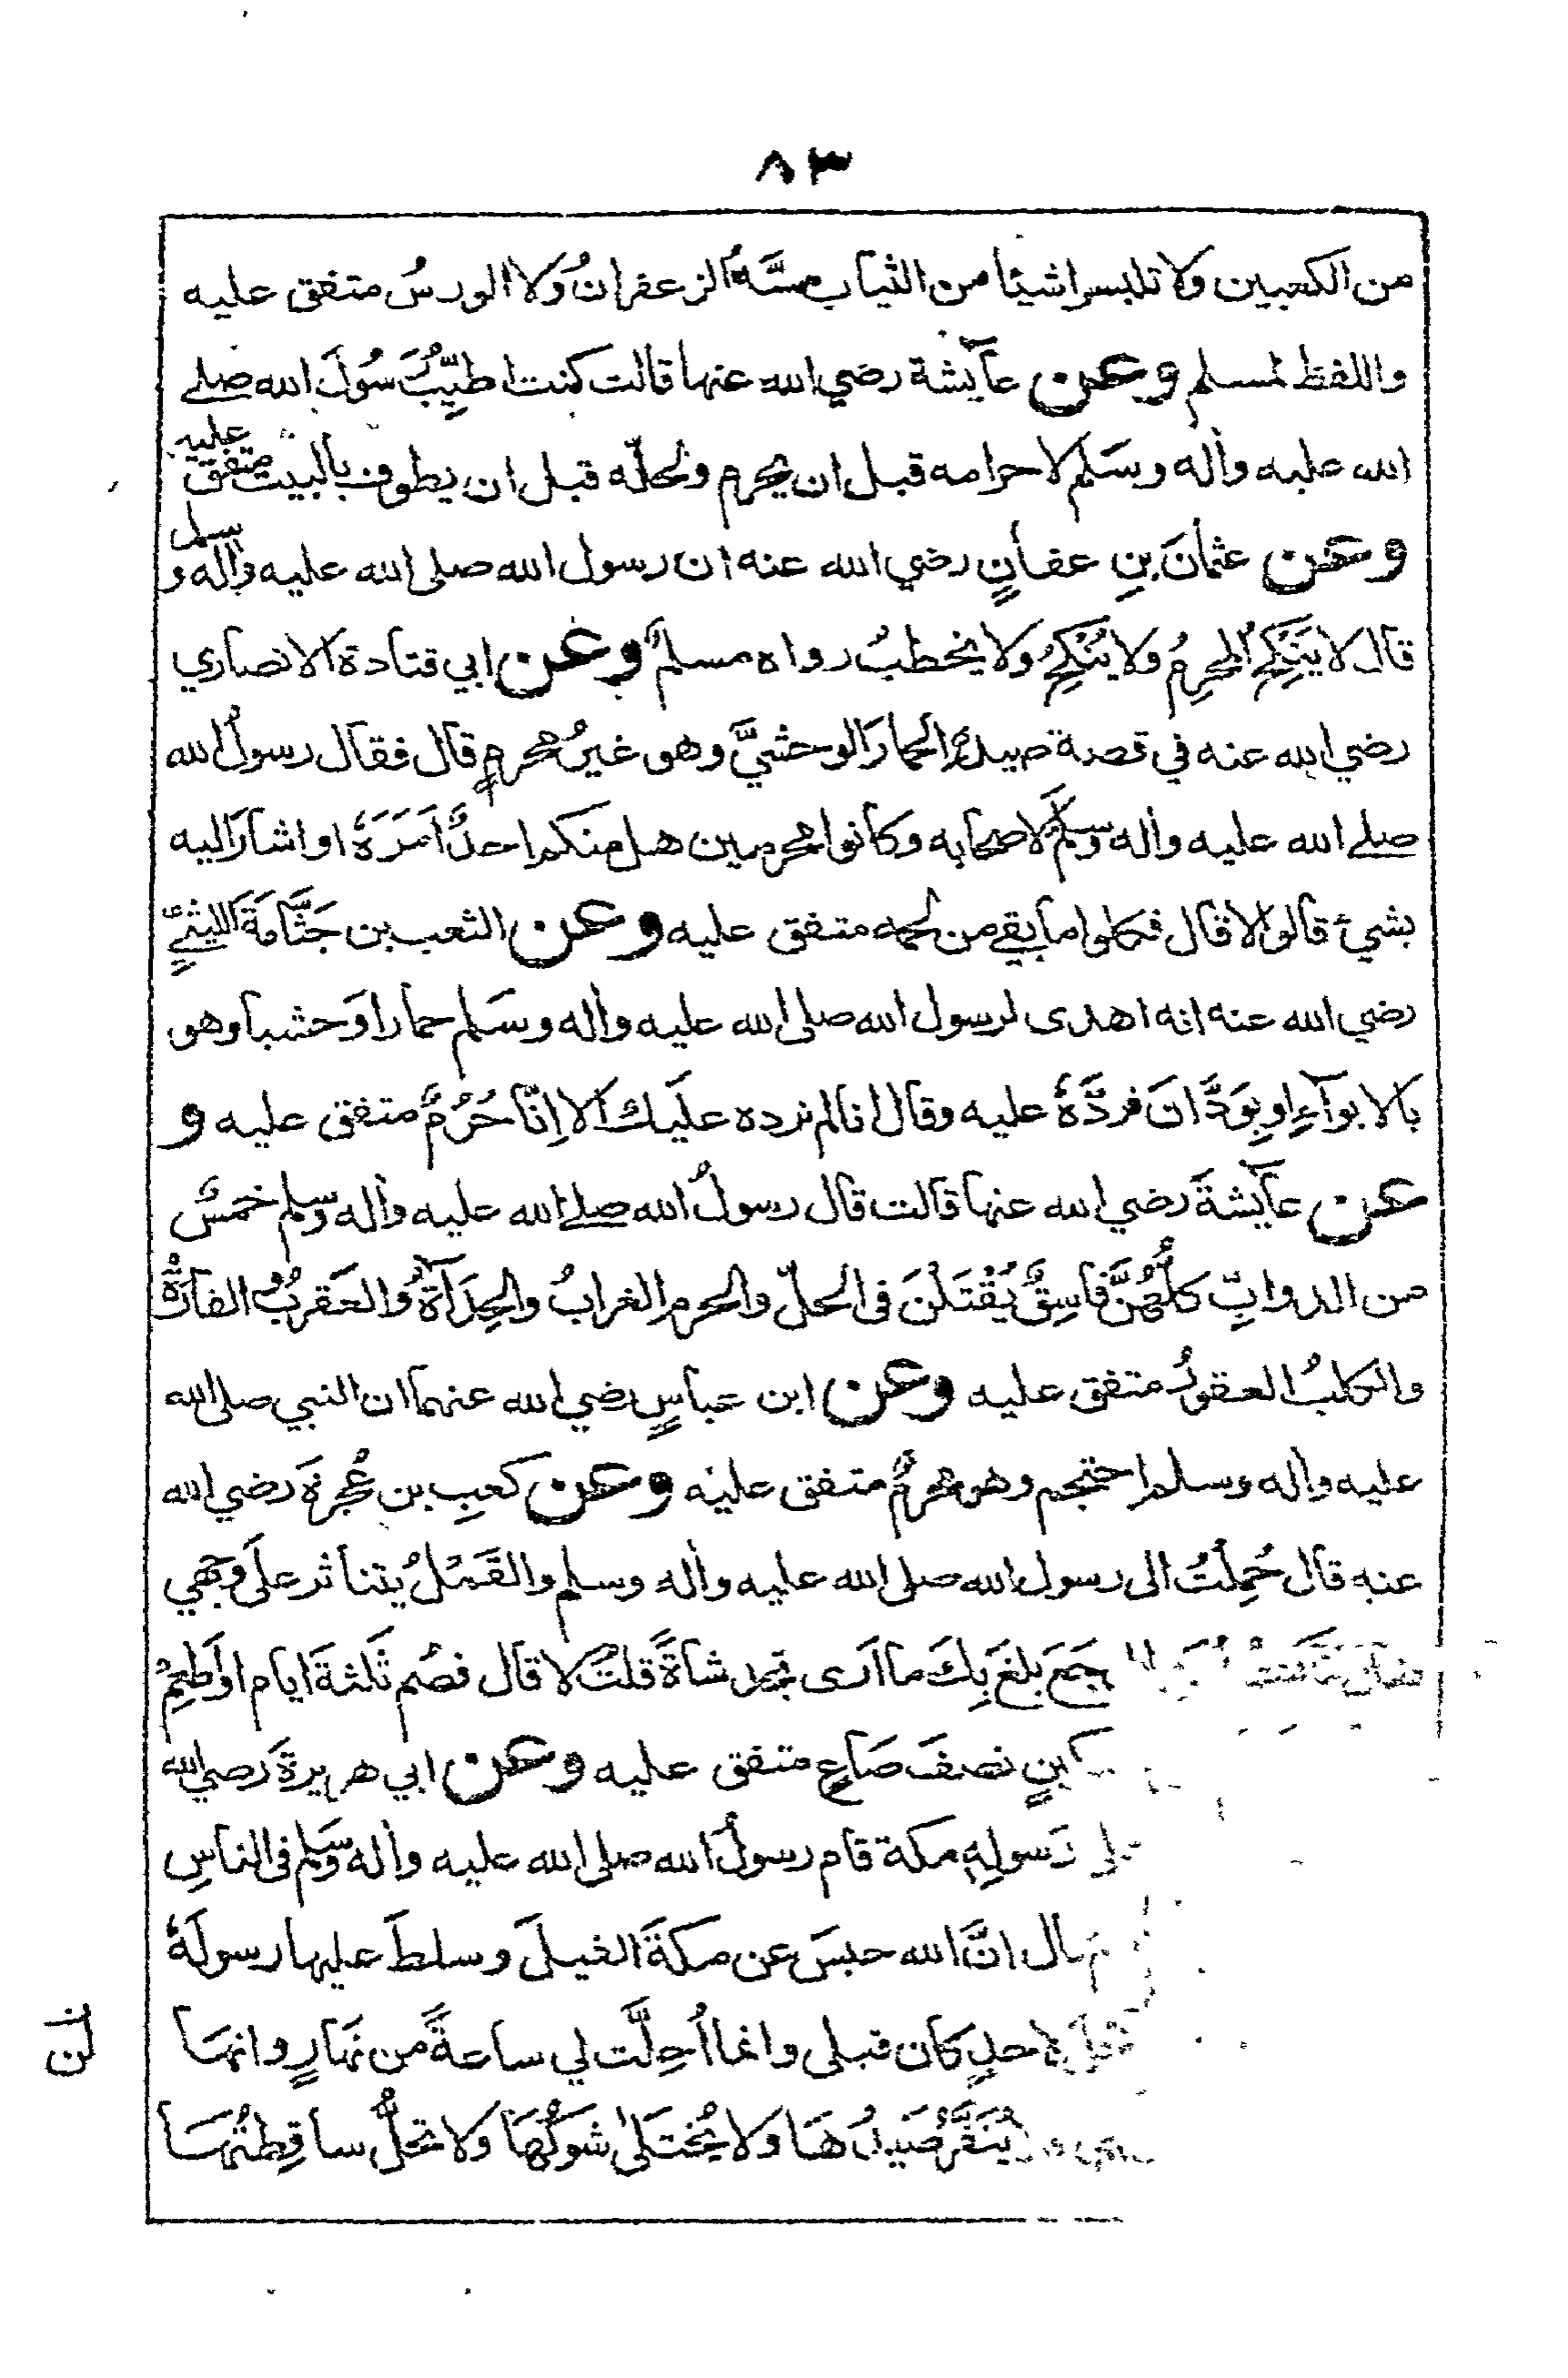 ٨٣
من الكعبين ولا تلبسوا شيئا من الثياب مسَّهُ الزعفرانُ وَلا الورسُ متفق عليه
واللفظ لمسلم وعن عآيشة رضي الله عنها قالت كنت اطيِّبُ رَسُولَ الله صلے
الله عليه واٰله وسَلم لاحرامه قبل ان يحرم ولحلّه قبل ان يطوف بالبيت متفق عليه
وعن عثمانَ بنِ عفانٍ رضي الله عنه ان رسول الله صلى الله عليه واٰله و سلم
قال لا يَنْكِحُ المحرِمُ ولا يُنْكِحُ ولا يخطبُ رواه مسلمٌ وعن ابي قتادة الانصاري
رضي الله عنه في قصة صيدهِ الحمارَ الوحشيَّ وهو غيرُ محرمٍ قال فقال رسولُ الله
صلے الله عليه واٰله وسلَّم لاصحابه وكانوا محرمين هل منكم احدٌ اَمَرَهٗ او اشارَ اليه
بشيءٍ قالوا لا قال فكلوا ما بقے من لحمه متفق عليه وعن الثعب بن جَثَّامَةَ الليثےِ
رضي الله عنه انه اهدى لرسول الله صلى الله عليه واٰله وسَلم حمارا وَحشيا وهو
بالابوآءِ او بِوَدَّانَ فردَّهٗ عليه وقال انا لم نرده علَيك اَلا اِنّا حُرُمٌ متفق عليه و
عن عآيشةَ رضي الله عنها قالت قال رسولُ الله صلے الله عليه واٰله وسلم خمسٌ
من الدوابِّ كلُّهُنَّ فاسِقٌ يُقْتَلْنَ فى الحلّ والحرم الغرابُ والحِدَآةُ والعَقربُ والفارَةُ
والكلبُ العقورُ متفق عليه وعن ابن عباسٍ رضي الله عنهما ان النبي صلى الله
عليه واٰله وسلم احتجم وهو محرمٌ متفق عليه وعن كعبِ بن عُجرَةَ رضي الله
عنه قال حُمِلتُ الى رسول الله صلى الله عليه واٰله وسلم والقَمْلُ يتناثر علَى وجهي
جَعَ بلغَ بِكَ ما اَرى تجد شاةً قلتُ لا قال فصُم ثَلثةَ ايام او اَطعِمْ
نصفَ صَاعٍ متفق عليه وعن ابي هريرةَ رضي الله
رَسولِهٖ مكة قام رسولُ الله صلى الله عليه واٰله وسَلم فى الناسِ
انَّ الله حبسَ عن مكةَ الفيلَ وسلطَ عليها رسولَهٗ
لاحدٍ كان قبلى وانما اُحِلَّت لي ساعةً من نهارٍ وانها
يُنَفَّرُ صَيدُهَا ولا يُختَلىٰ شوكُهَا وَلا تحلُّ ساقِطتُهَا
لن